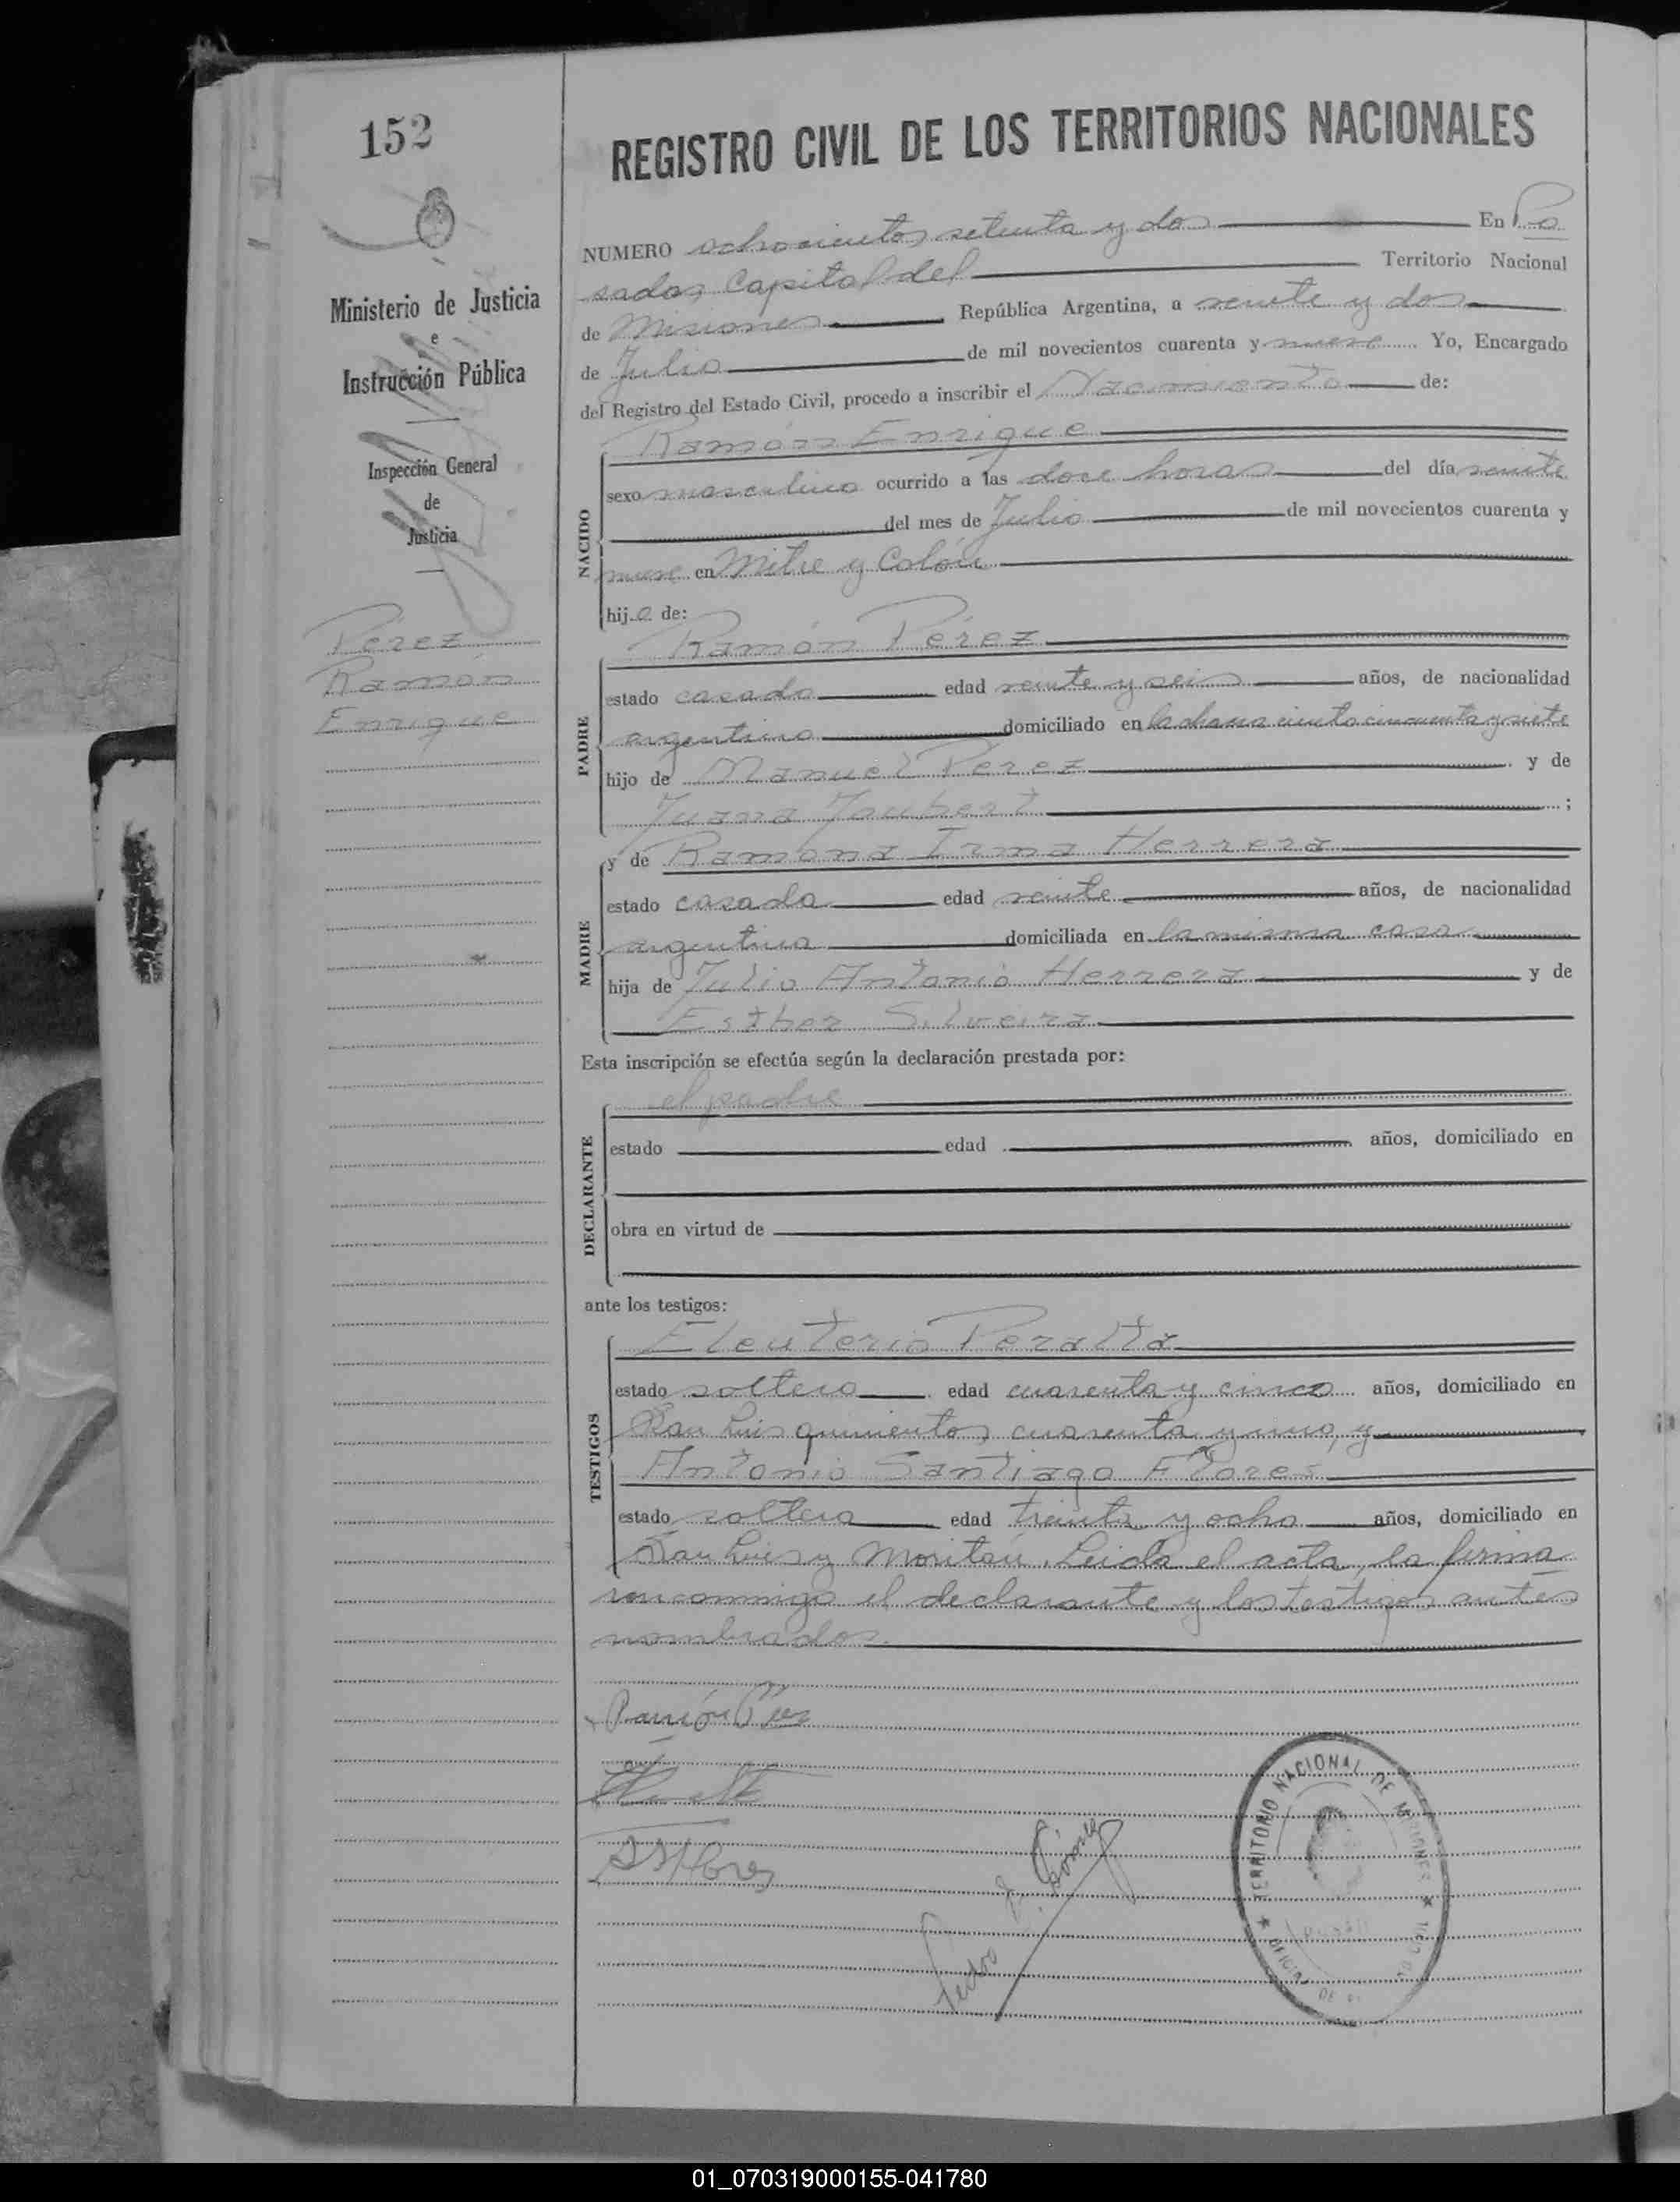 152
REGISTRO CIVIL DE LOS TERRITORIOS NACIONALES
NUMERO ochocientos setenta y dos En Po
sadas Capital del Territorio Nacional
de Misiones República Argentina, a veinte y dos
de Julio de mil novecientos cuarenta y nueve Yo, Encargado
del Registro del Estado Civil, procedo a inscribir el Nacimiento de:
Ministerio de Justicia
e
Instrucción Pública
Inspección General
de
Justicia
Pérez
Ramón
Enrique
Ramón Enrique
NACIDO
sexo masculino ocurrido a las doce horas del día veinte
del mes de Julio de mil novecientos cuarenta y
nueve en Mitre y Colón
hijo de:
Ramón Pérez
PADRE
estado casado edad veinte y seis años, de nacionalidad
argentino domiciliado en la chacra ciento cincuenta y siete
hijo de Manuel Pérez y de
Juana Joubert ;
y de Ramona Irma Herrera
MADRE
estado casada edad veinte años, de nacionalidad
argentina domiciliada en la misma casa
hija de Julio Antonio Herrera y de
Esther Silveira
Esta inscripción se efectúa según la declaración prestada por:
el padre
DECLARANTE
estado edad años, domiciliado en
obra en virtud de
ante los testigos:
Eleuterio Peralta
TESTIGOS
estado soltero edad cuarenta y cinco años, domiciliado en
San Luis quinientos cuarenta y uno, y
Antonio Santiago Flores
estado soltero edad treinta y ocho años, domiciliado en
San Luis y Moritán. Leida el acta, la firma
ron conmigo el declarante y los testigos antes
nombrados.
Ramón Pérez
A S Flores
Pedro J. Gómez
TERRITORIO NACIONAL DE MISIONES
01_070319000155-041780